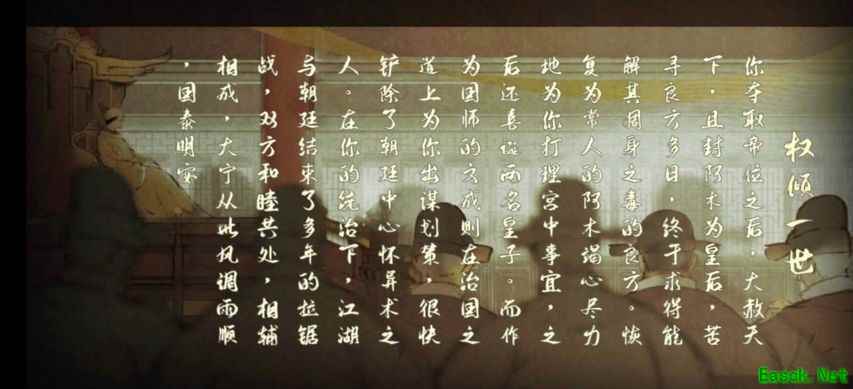 权倾一世
你夺取帝位之后，大赦天
下，且封阿木为皇后，苦
寻良方多日，终于求得能
解其固身之毒的良方。恢
复为常人的阿木竭心尽力
地为你打理宫中事宜，之
后还喜诞两名皇子。而作
为国师的方成则在治国之
道上为你出谋划策，很快
铲除了朝廷中心怀异术之
人。在你的统治下，江湖
与朝廷结束了多年的拉锯
战，双方和睦共处，相辅
相成，大宁从此风调雨顺
，国泰明安
Easck.Net